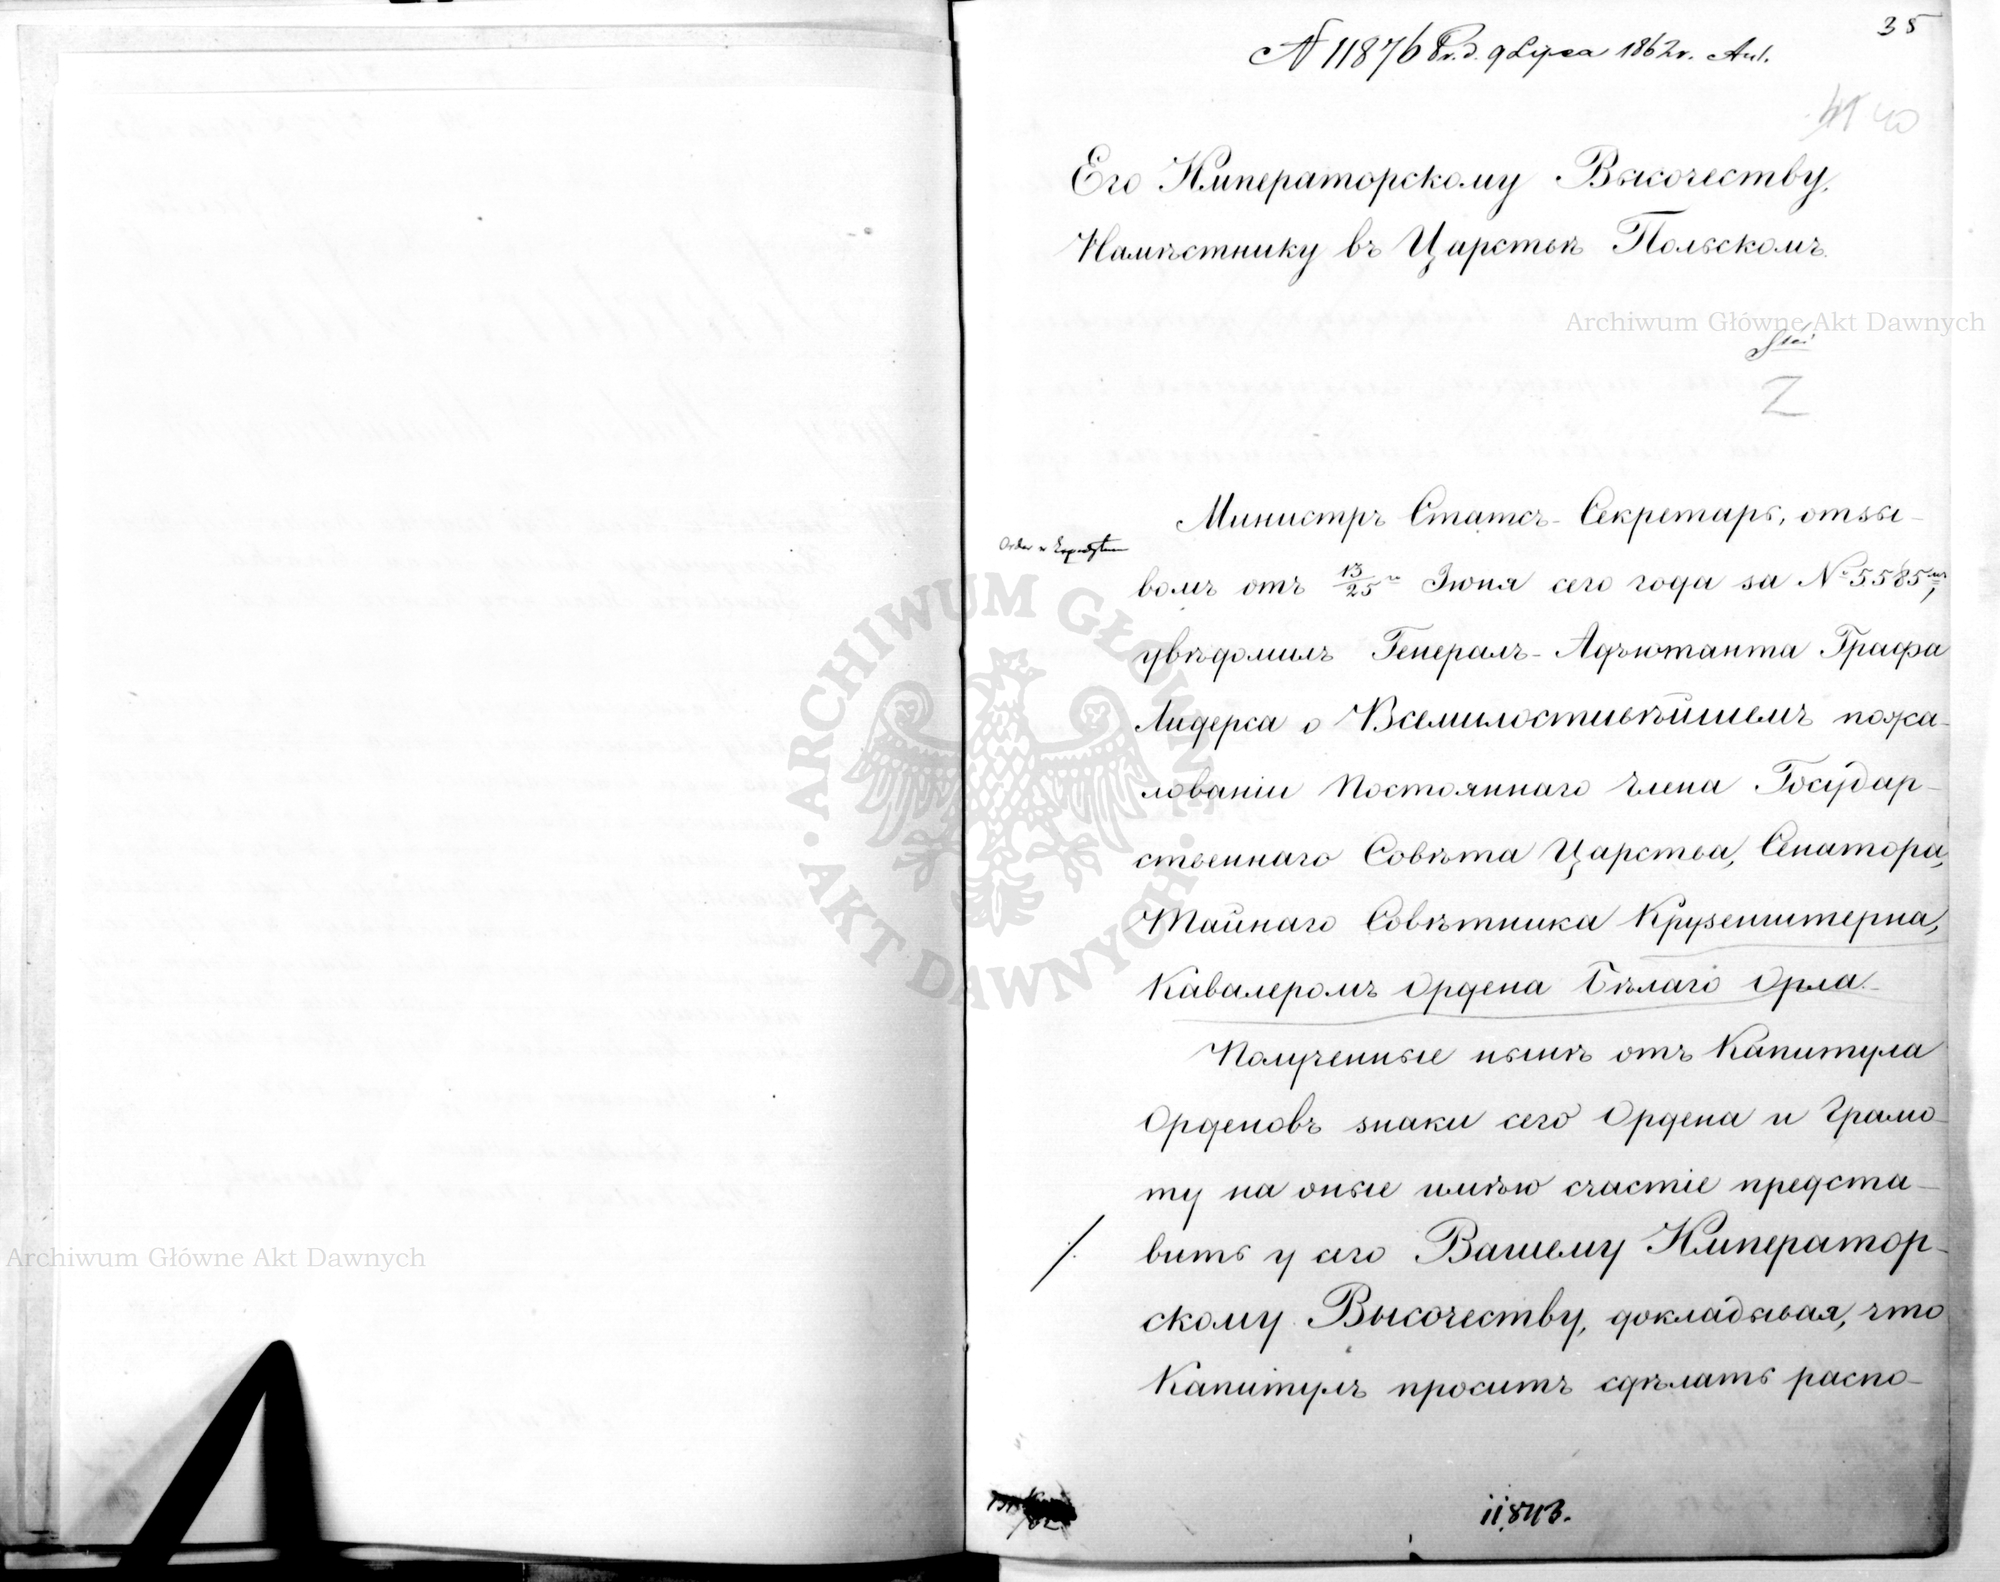 35
N 11876 Pr. d. 9 Lipca 1862 r. Aul.
40
Его Императорскому Высочеству,
Намѣстнику въ Царствѣ Польскомъ.
Archiwum Główne Akt Dawnych
Z
Министръ Статсъ-Секретарь, отзы-
Order w
вомъ отъ 13/25го Іюня сего года за № 5585мъ,
увѣдомилъ Генералъ-Адъютанта Графа
Лидерса о Всемилостивѣйшемъ пожа-
лованіи Постояннаго Члена Государ-
ственнаго Совѣта Царства, Сенатора,
Тайнаго Совѣтника Крузенштерна,
Кавалеромъ Ордена Бѣлаго Орла.
Полученные нынѣ отъ Капитула
Орденовъ знаки сего Ордена и Грамо-
ту на оные имѣю счастіе предста-
вить у сего Вашему Император-
скому Высочеству, докладывая, что
Капитулъ проситъ сдѣлать распо-
11,843.
ARCHIWUM GŁÓWNE AKT DAWNYCH
Archiwum Główne Akt Dawnych